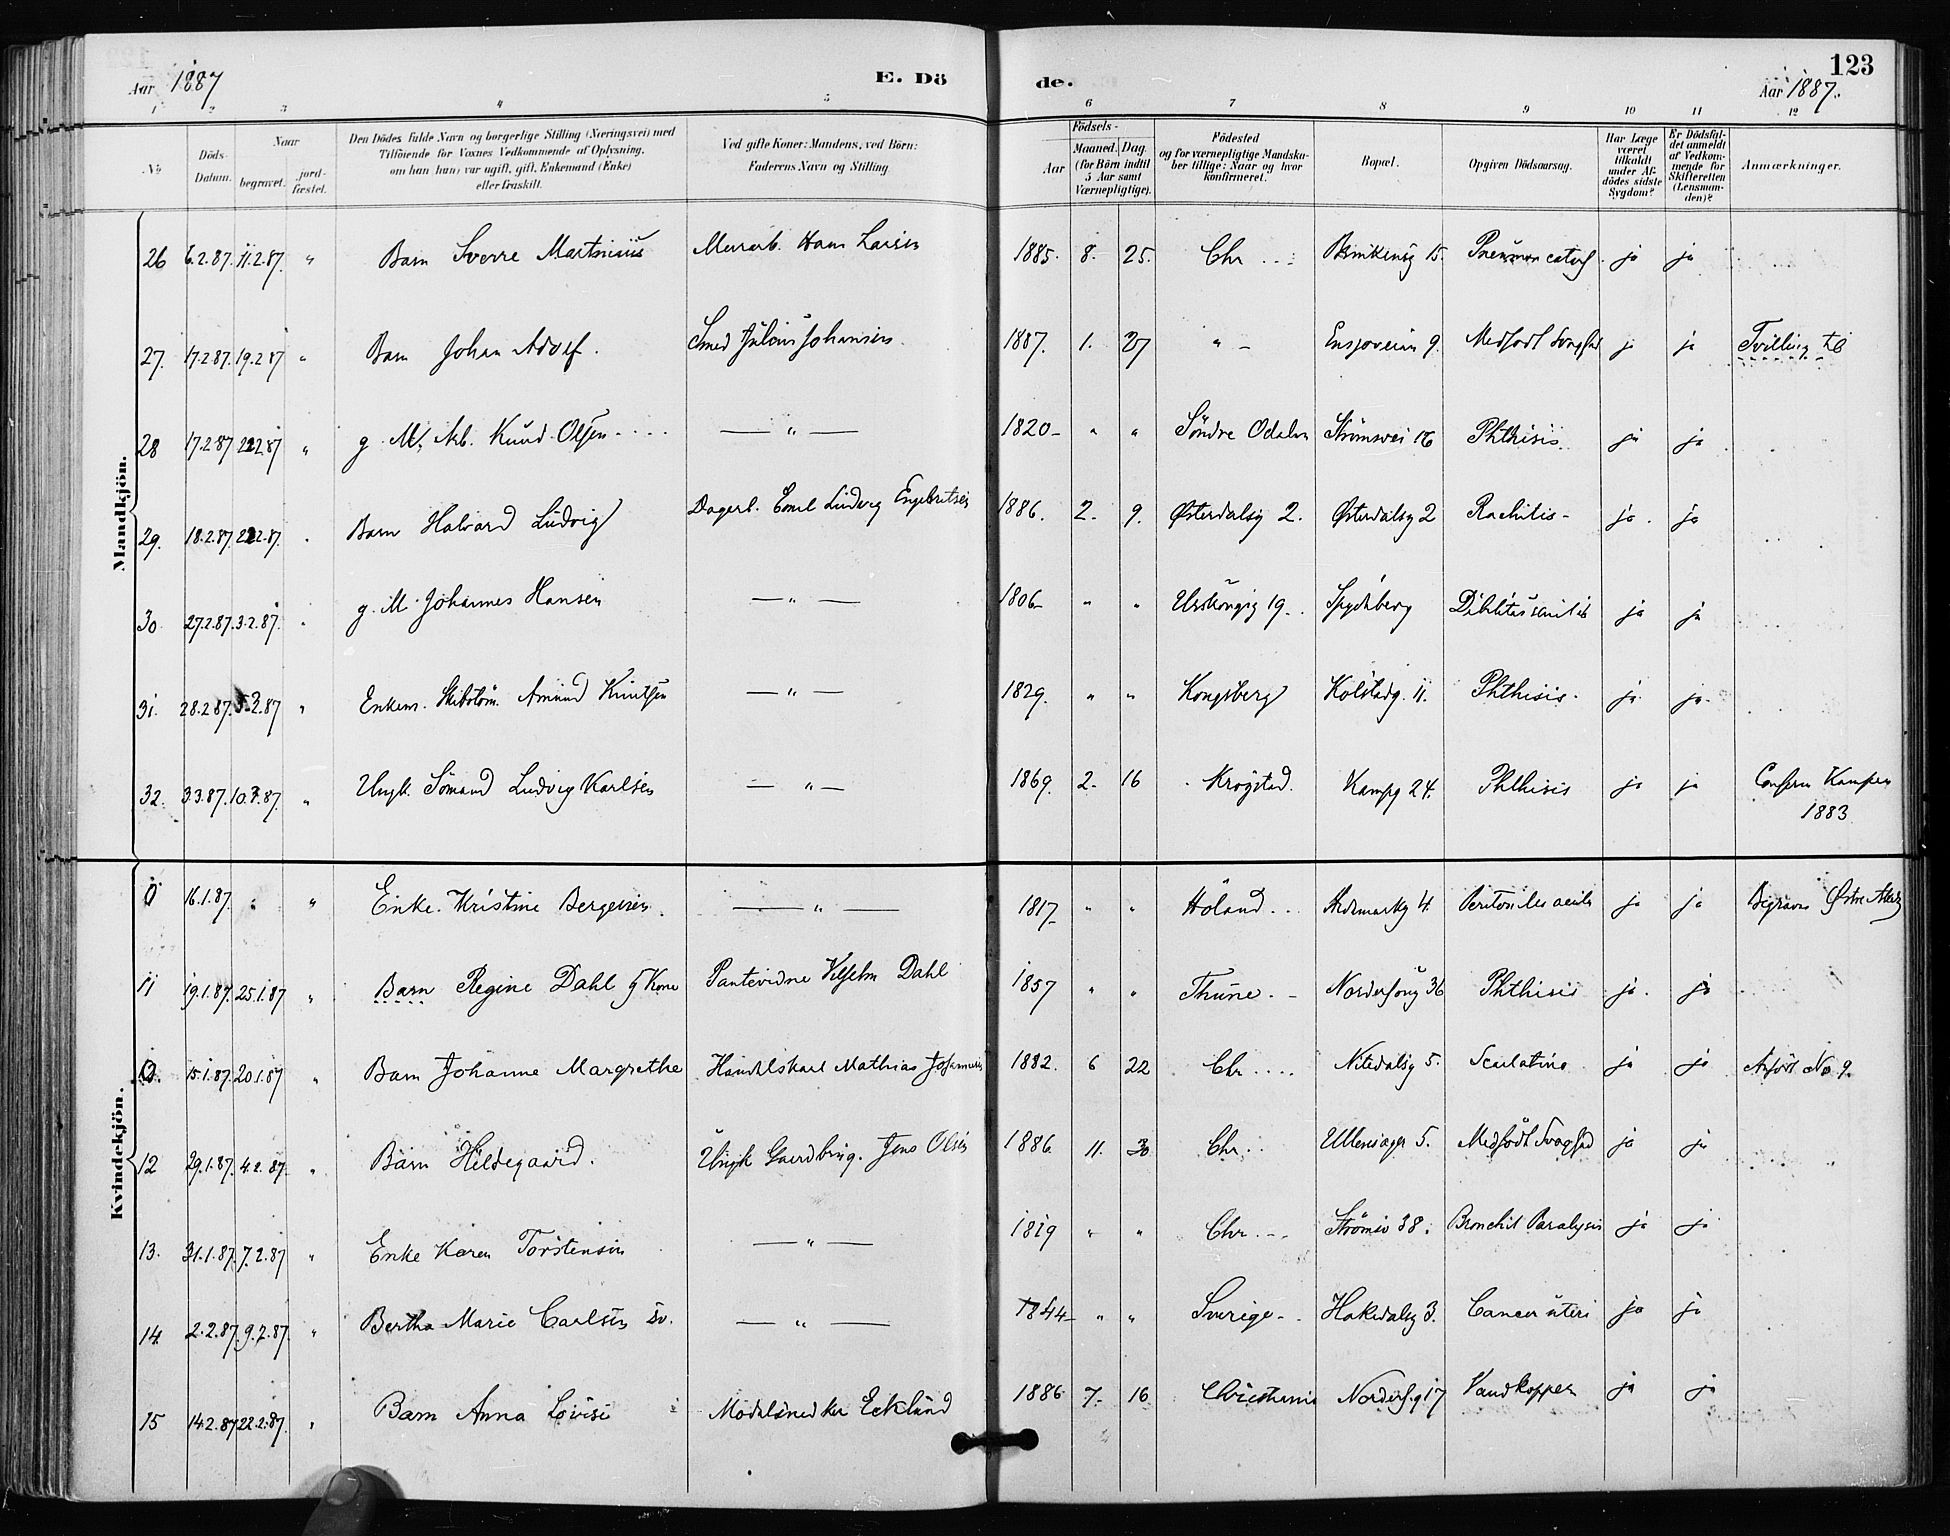 Aar 1887 E. Dö de. 123
Aar 1887.
1 2 3 4 5 6 7 8 9 10 11 12
No. Döds-Datum. Naar begravet. jord-fæstet. Den Dödes fulde Navn og borgerlige Stilling (Næringsvei) med Tilföiende for Voxnes Vedkommende af Oplysning, om han (hun) var ugift, gift, Enkemand (Enke) eller fraskilt. Ved gifte Koner: Mandens, ved Börn: Faderens Navn og Stilling. Födsels- Aar Maaned. Dag. (for Börn indtil 5 Aar samt Værnepligtige). Födested og for værnepligtige Mandskaber tillige: Naar og hvor konfirmeret. Bopæl. Opgiven Dödsaarsag. Har Læge været tilkaldt under Afdödes sidste Sygdom? Er Dödsfaldet anmeldt af Vedkommende for Skifteretten (Lensmanden)? Anmærkninger.
Mandkjön.
26 6.2.87. 11.2.87. " Barn Sverre Martinius Murarb. Hans Larsen 1885. 8. 25. Chr. Brinkensg 15. Pneumon catarh. ja ja
27. 17.2.87. 19.2.87 " Barn Johan Adolf. Smed Julius Johansen. 1887. 1. 27 " Ensjoveien 9. Medfödt Svaghed ja ja Tvilling til
28 17.2.87 22.2.87 " g. M, Arb. Knud Olsen — " — 1820 " " Söndre Odalen Strömsvei 16 Phthisis ja ja
29. 18.2.87. 22.2.87. " Barn Halvard Ludvig Dagarb. Emil Ludvig Engebretsen 1886. 2. 9. Østerdalsg 2. Østerdalsg 2 Rachitis ja ja
30 27.2.87. 3.2.87. " g. M. Johannes Hansen — " — 1806 " " Urskougsg 19 Spydeberg Debilitas senilis ja ja
31. 28.2.87. 5.2.87 " Enkem. Skibstöm. Amund Knutsen — " — 1829. " " Kongsberg Kolstadg. 11. Phthisis ja ja
32. 3.3.87. 10.3.87. " Ungk. Sömand Ludvig Karlsen — " — 1869. 2. 16 Krogstad. Kampg 24. Phthisis ja ja Confirm Kampen
1883
Kvindekjön.
0 16.1.87. " " Enke. Kristine Bergersen. — " — 1817 " " Höland Hedemarkg 4. Peritonites acuta ja ja Begraves Østre Aker
11 19.1.87. 25.1.87 " Barn Regine Dahl g Kone Pantevidne Vilhelm Dahl 1857 " " Thune. Norderhoug 36 Phthisis ja ja
0. 15.1.87. 20.1.87 " Barn Johanne Margrethe Handelskarl Mathias Johannesen 1882. 6 22 Chr. Nitedalsg 5. Scarlatina ja ja Anfört No 9.
12 29.1.87. 4.2.87. " Barn Hildegaard. Ungk Gaardbrug. Jens Olsen 1886 11. 30 Chr. Ullensager 5. Medfödt Svaghed ja ja
13. 31.1.87. 7.2.87 " Enke Karen Torstensen — " — 1819 " " Chr. Strömsv 38. Bronchit Paralysis ja ja
14 2.2.87. 9.2.87. " Bertha Marie Carlsen Sv. — " — 1844 " " Sverige Hakedalsg 3. Cancer uteri ja ja
15 14.2.87 22.2.87. " Barn Anna Lovise Modelsnedker Ecklund 1886 7. 16 Christiania Norderh.g 17 Vandkopper ja ja